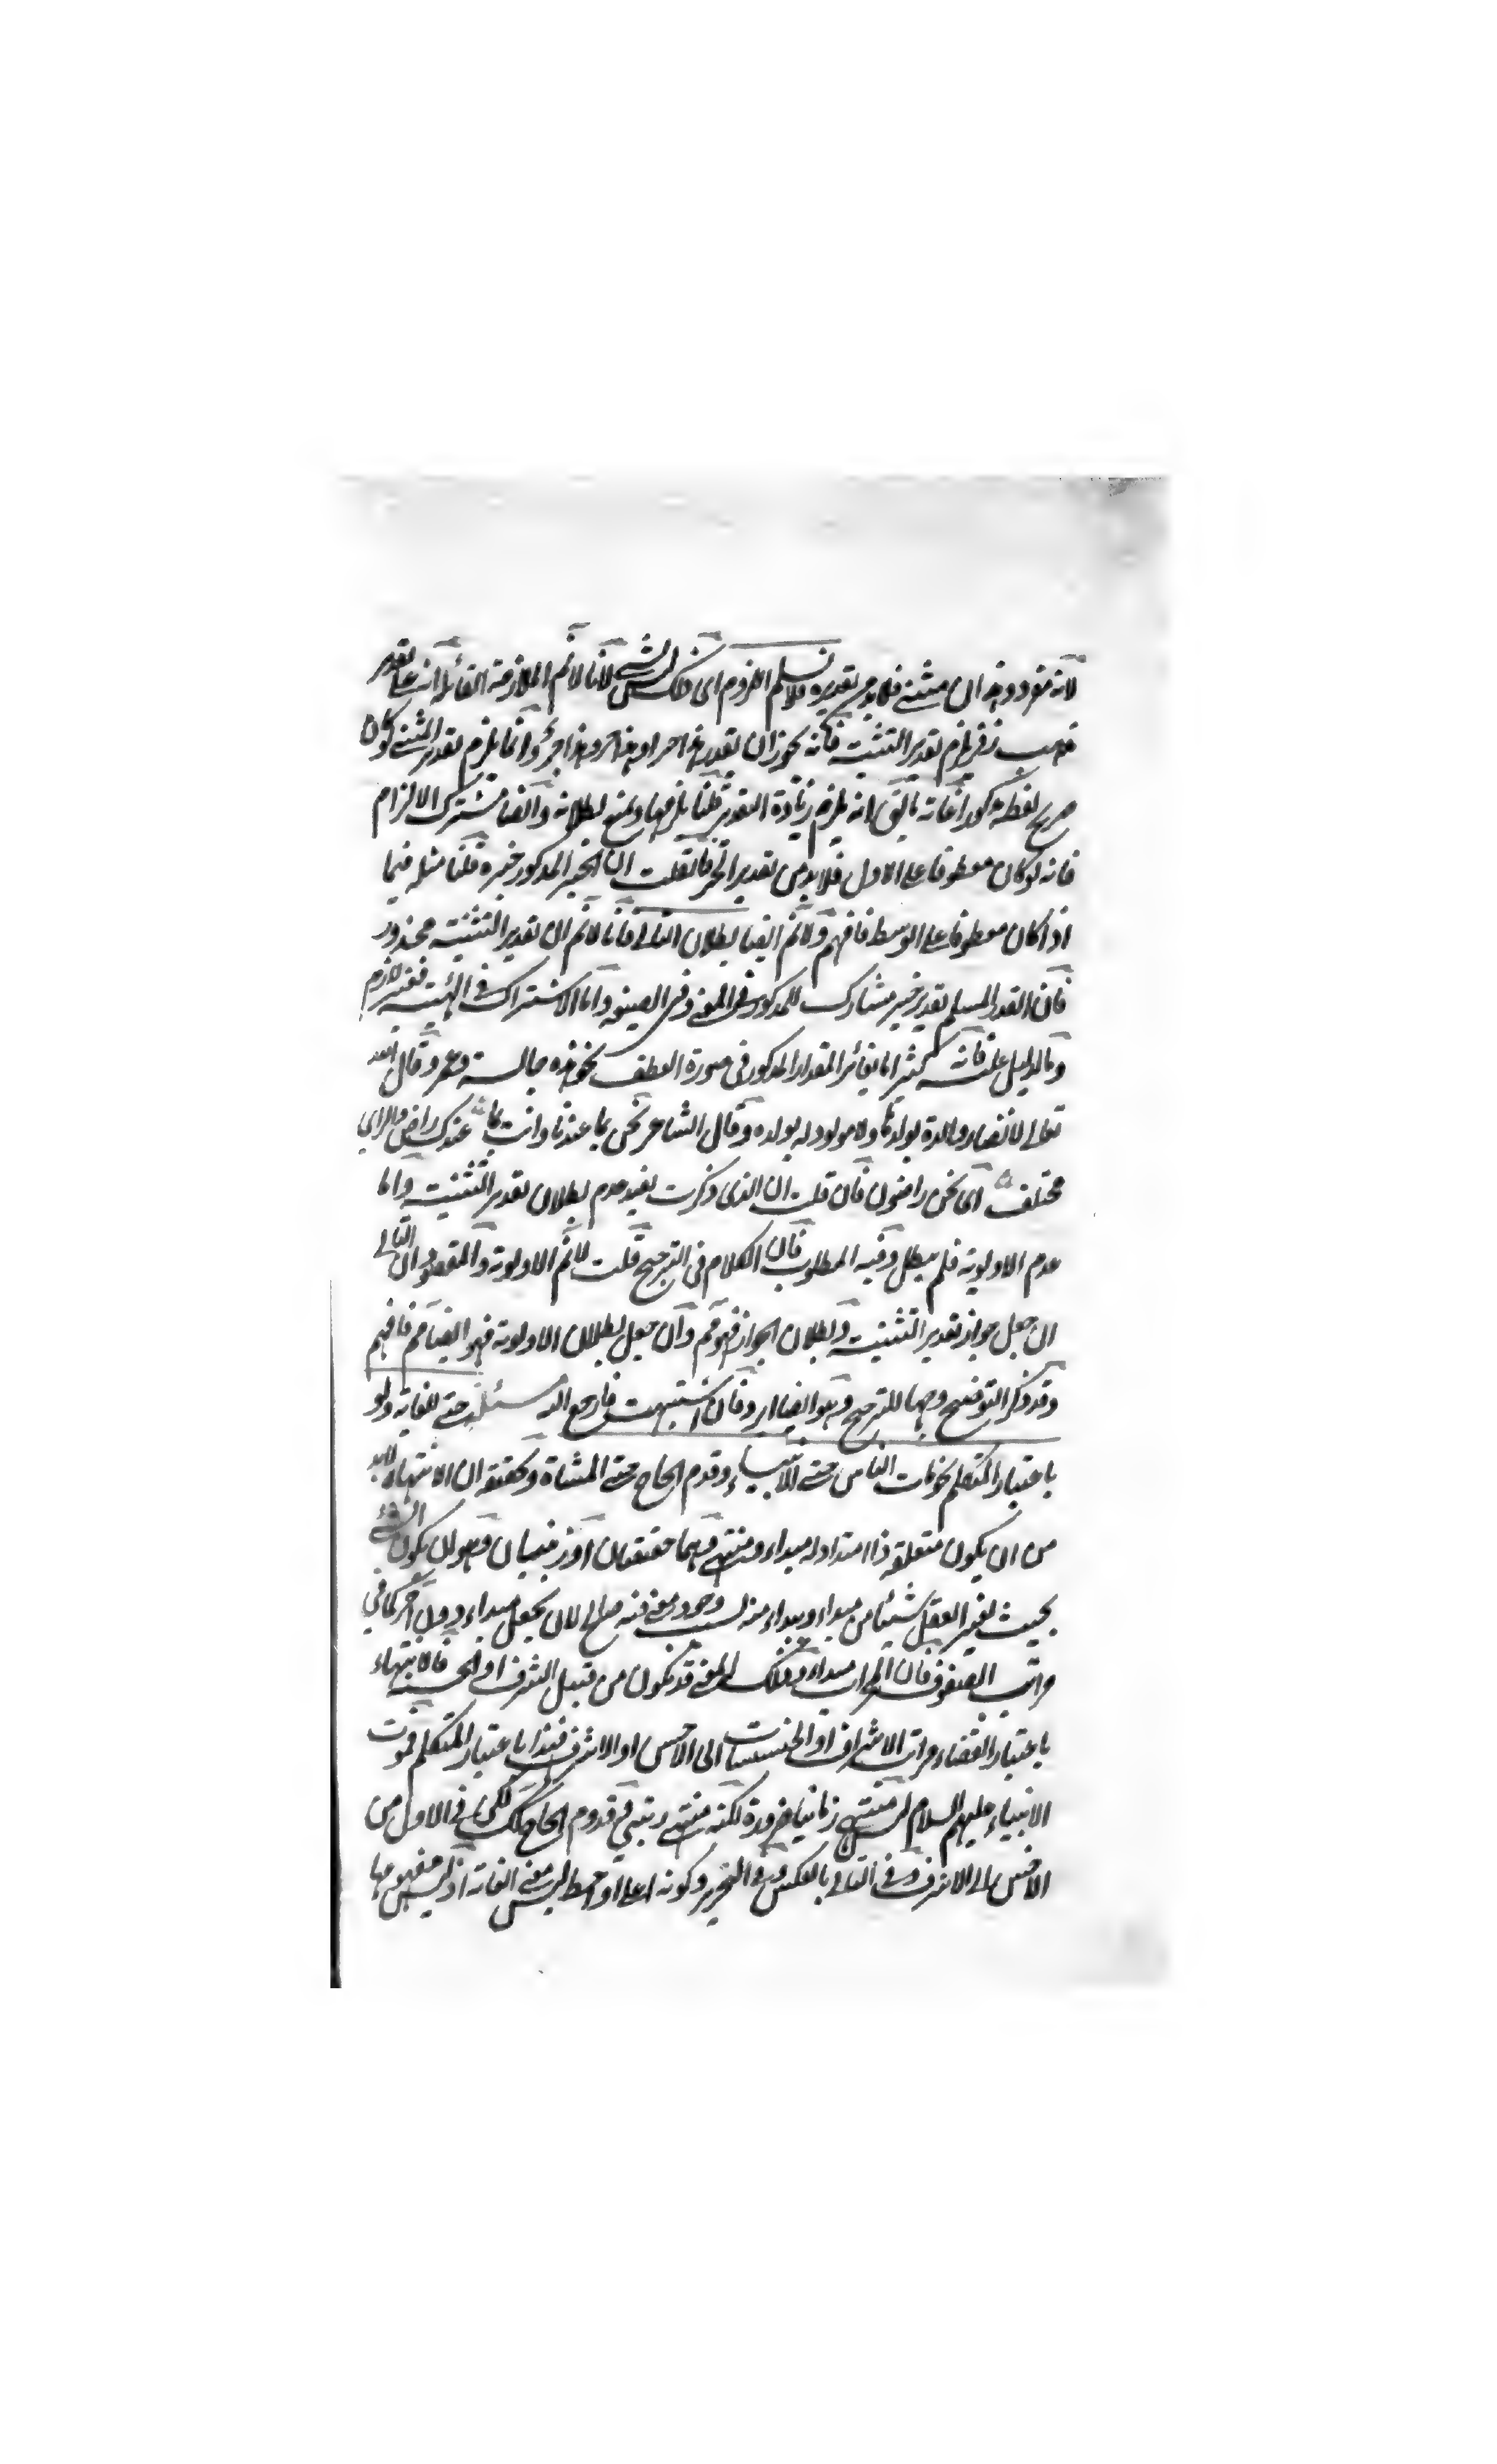 لانه مفرد وهذان مثنى فلا بد من تقديره ولا نسلم اللزوم اى ذلك ليس بشئ لانا لانم الملازمة القائلة انه على تقدير
مذهب زفر يلزم تقدير التثنية فانه يجوز ان يقدر هذا حر او هذا حر وهذا حر وانما يلزم تقدير المثنى لو كان
لفظه مذكورا غاية ما يقال انه يلزم زيادة التقدير قلنا يلزمها ونمنع بطلانه وايضا مشترك الالزام
فانه لو كان معطوفا على الاول فلا بد من تقدير الخبر فان قلت ان الخبر المذكور خبره قلنا مثله فيما
اذا كان معطوفا على الوسط فافهم ولانم ايضا بطلان التالى فانا لانم ان تقدير التثنية محذور
فان القدر المسلم تقدير خبر مشارك للمذكور فى المعنى وفى الصيغة واما الاشتراك فى الهيئة فغير لازم
وما الدليل عليه فانه كثيرا ما يغائر المقدر المذكور فى صورة العطف نحو هذه جالسة وعمرو قال الله
تعالى لا تضار والدة بولدها ولا مولود له بولده وقال الشاعر نحن بما عندنا وانت بما عندك راض والراى
مختلف اى نحن راضون فان قلت ان الذى ذكرت يفيد عدم بطلان تقدير التثنية واما
عدم الاولوية فلم يبطل وفيه المطلوب فان الكلام فى الترجيح قلت لانم الاولوية والمقصود ان التالى
ان جعل جواز تقدير التثنية وبطلان الجواز فهو مم وان جعل بطلان الاولوية فهو ايضا مم فافهم
وقد ذكر التوضيح وجها للترجيح وهو ايضا فان اشتبهت فارجع اليه مسئلة حتى للغاية ولو
باعتبار المتكلم نحو مات الناس حتى الانبياء وقدم الحاج حتى المشاة وتحقيقه ان الانتهاء لابد
من ان يكون متعلقه ذا امتداد له مبداء ومنتهى وهما حقيقيان او وهو ان يكون الشئ
بحيث يعتبر العقل شيئا من مبداء منه لسبب وجود معنى فيه صالح لان يجعل مبداء دون آخر كما فى
مراتب الصفوف فان المحراب مبداء وذلك المعنى قد يكون من قبيل الشرف او الخسة فالانتهاء
باعتبار انقضاء مراتب الاشراف او الخسيسات الى الاخس او الاشرف فهذا باعتبار المتكلم فموت
الانبياء عليهم السلام ليس منتهى زمانيا ضرورة لكنه منتهى رتبى وقدوم الحاج كذلك لكن فى الاول من
الاخس الى الاشرف وفى الثانى بالعكس وفى التحرير وكونه اعلى او احط ليس معنى الغاية اذ ليس مفهومها